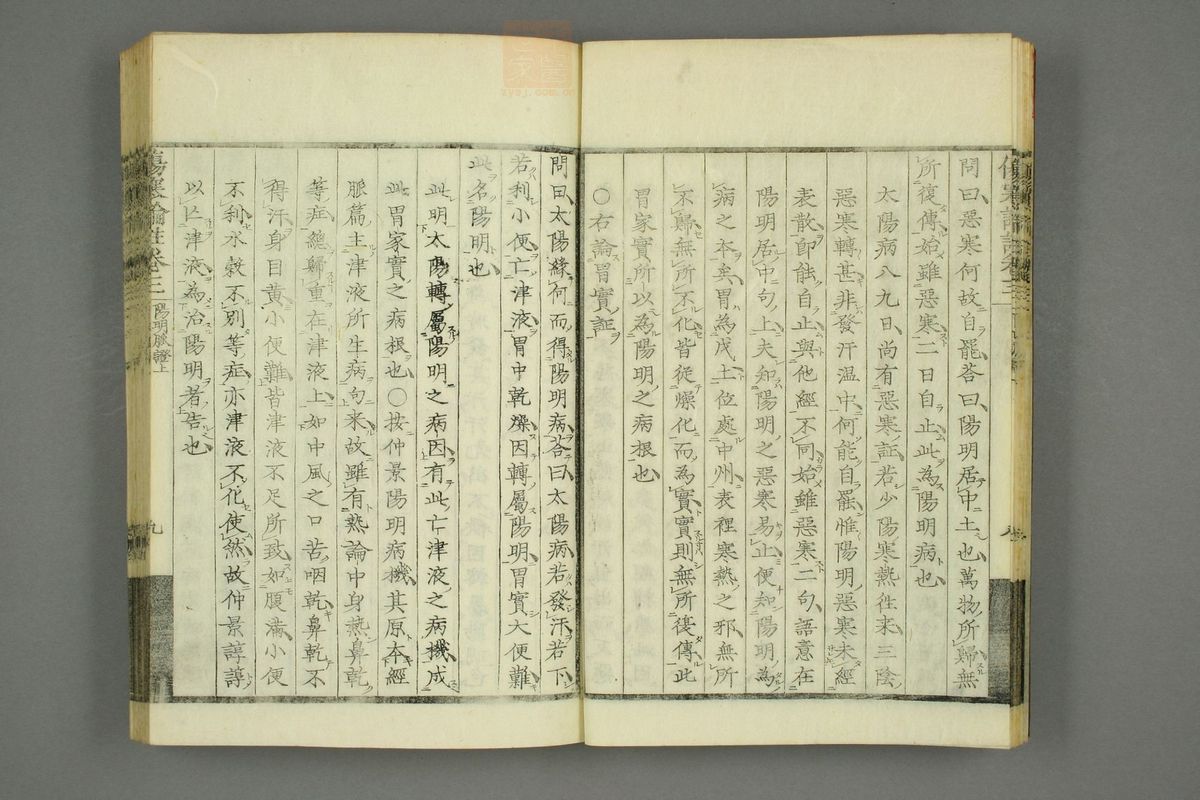 問曰惡寒何故自罷荅曰陽明居中土也萬物所歸無
所復傳始雖惡寒二日自止此為陽明病也
太陽病八九日尚有惡寒証若少陽寒熱徃来三陰
惡寒轉甚非發汗温中何能自罷惟陽明惡寒未經
表散即能自止與他經不同始雖惡寒二句語意在
陽明居中句上夫知陽明之惡寒易止便知陽明為
病之本矣胃為戊土位處中州表裡寒熱之邪無所
不歸無所不化皆從燥化而為實實則無所復傳此
胃家實所以為陽明之病根也
○右論胃實証
問曰太陽緣何而得陽明病荅曰太陽病若發汗若下
若利小便亡津液胃中乾燥因轉屬陽明胃實大便難
此名陽明也
此明太陽轉屬陽明之病因有此亡津液之病機成
此胃家實之病根也○按仲景陽明病機其原本經
脈篇主津液所生病句来故雖有熱論中身熱鼻乾
等症總歸重在津液上如中風之口苦咽乾鼻乾不
得汗身目黃小便難皆津液不足所致如腹滿小便
不利水穀不別等症亦津液不化使然故仲景諄諄
以亡津液為治陽明者告也
傷寒論註卷二 陽明脈證上
九